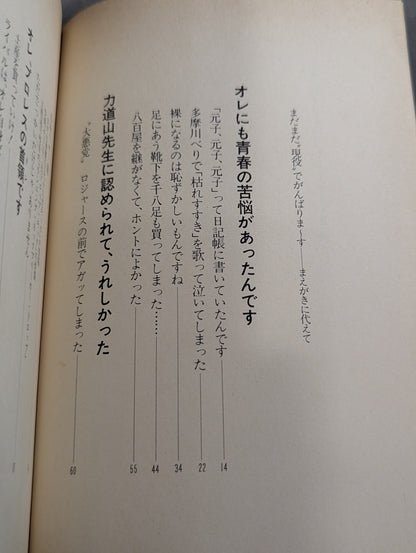 まだまだ“現役”でがんばりま〜す——まえがきに代えて
オレにも青春の苦悩があったんです
「元子、元子、元子」って日記帳に書いていたんです 14
多摩川べりで「枯れすすき」を歌って泣いてしまった 22
裸になるのは恥ずかしいもんですね 34
足にあう靴下を千八足も買ってしまった…… 44
八百屋を継がなくて、ホントによかった 55
力道山先生に認められて、うれしかった
“大悪党”ロジャースの前でアガッてしまった 60